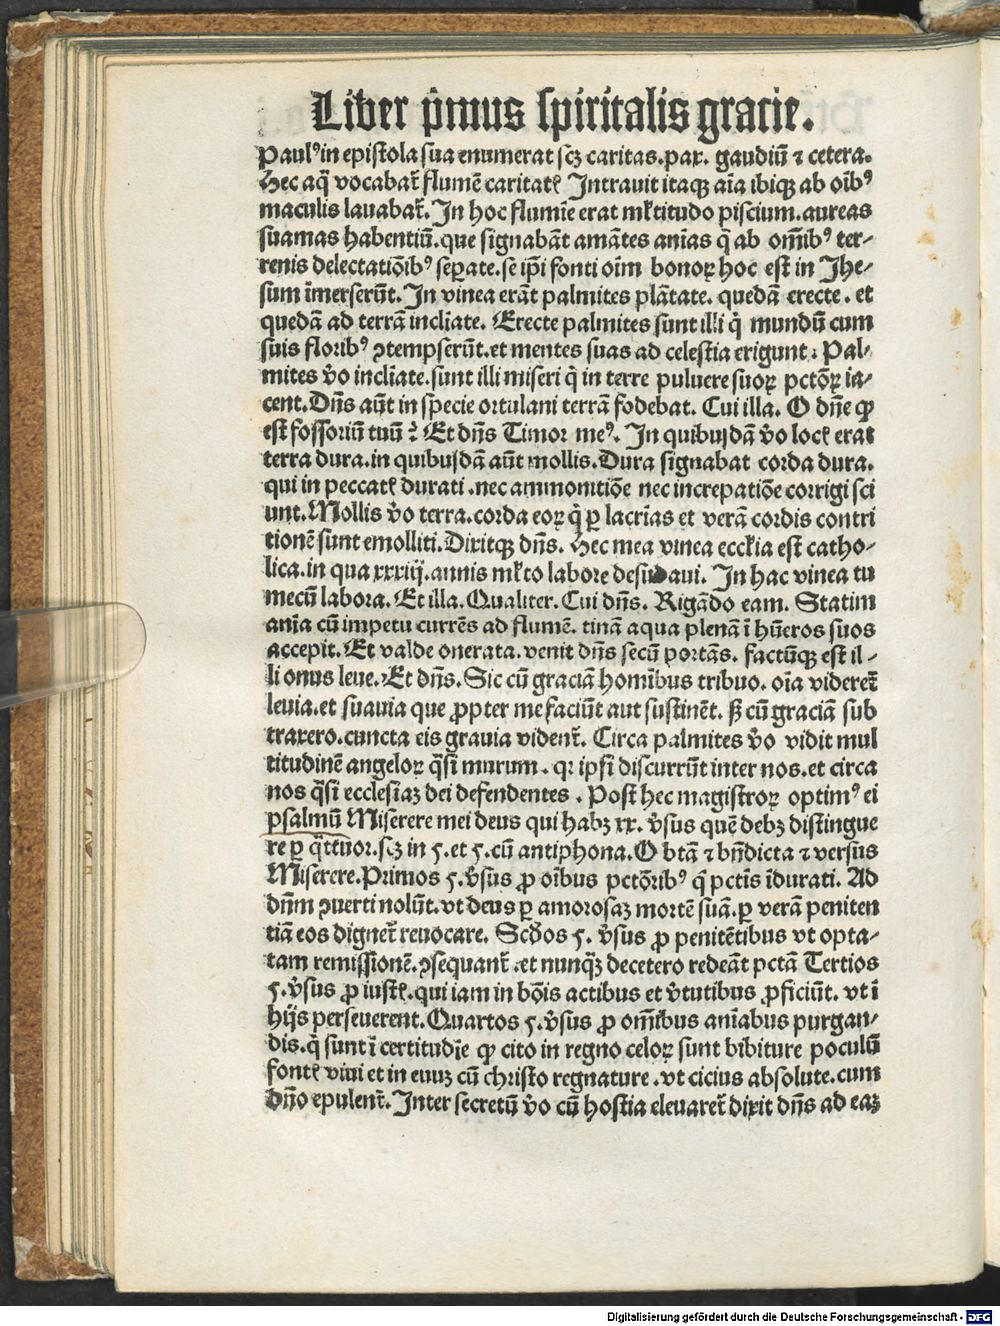 Liber p̄imus spiritalis gracie.
Paulꝰ in epistola sua enumerat scꝫ caritas.pax. gaudiū ⁊ cetera.
Hec aq̄ vocabat̄ flumē caritatꝭ Intrauit itaqꝫ aīa ibiqꝫ ab oībꝰ
maculis lauabat̄. In hoc flumīe erat ml̄titudo piscium.aureas
suamas habentiū.que signabāt amātes anīas q̄ ab om̄ibꝰ ter⸗
renis delectatiōibꝰ seꝑate.se ip̄i fonti oīm bonoꝝ hoc est in Jhe⸗
sum īmerserūt. In vinea erāt palmites plātate. quedā erecte. et
quedā ad terrā incliate. Erecte palmites sunt illi q̄ mundū cum
suis floribꝰ ꝯtempserūt.et mentes suas ad celestia erigunt: Pal⸗
mites v̄o incliate.sunt illi miseri q̄ in terre puluere suoꝝ pctōꝝ ia⸗
cent.Dn̄s aūt in specie ortulani terrā fodebat. Cui illa. O dn̄e ꝙ
est fossoriū tuū ⁊̄ Et dn̄s Timor meꝰ. In quibusdā v̄o locꝭ erat
terra dura.in quibusdā aūt mollis.Dura signabat corda dura.
qui in peccatꝭ durati.nec ammonitiōe nec increpatiōe corrigi sci
unt.Mollis v̄o terra.corda eoꝝ q̄ ꝑ lacrīas et verā cordis contri
tionē sunt emolliti.Dixitqꝫ dn̄s. Hec mea vinea eccl̄ia est catho⸗
lica.in qua xxxiij.annis ml̄to labore desudaui. In hac vinea tu
mecū labora. Et illa.Qualiter.Cui dn̄s. Rigādo eam. Statim
anīa cū impetu currēs ad flumē. tinā aqua plenā ī hūeros suos
accepit.Et valde onerata.venit dn̄s secū portās. factūqꝫ est il⸗
li onus leue. Et dn̄s.Sic cū graciā homībus tribuo.oīa videret̄
leuia.et suauia que ꝓpter me faciūt aut sustinēt. ß cū graciā sub
traxero.cuncta eis grauia vident̄. Circa palmites v̄o vidit mul
titudinē angeloꝝ q̄si murum. qꝛ ipsi discurrūt inter nos.et circa
nos q̄si ecclesiaꝫ dei defendentes. Post hec magistroꝝ optimꝰ ei
psalmū Miserere mei deus qui habꝫ xx. v̄sus quē debꝫ distingue
re ꝑ q̄ttuor.scꝫ in 5.et 5.cū antiphona.O btā ⁊ bn̄dicta ⁊ versus
Miserere.Primos 5.v̄sus ꝓ oībus pctōribꝰ q̄ pctīs īdurati. Ad
dn̄m ꝯuerti nolūt.vt deus ꝑ amorosaꝫ mortē suā.ꝑ verā peniten
tiā eos dignet̄ reuocare. Scd̄os 5. v̄sus ꝓ penitētibus vt opta⸗
tam remissionē.ꝯsequant̄.et nunq̄ꝫ decetero redeāt pctā Tertios
5.v̄sus ꝓ iustꝭ.qui iam in bōis actibus et v̄tutibus ꝓficiūt. vt ī
hijs perseuerent.Quartos 5.v̄sus ꝓ om̄ibus anīabus purgan⸗
dis.q̄ sunt ī certitudīe ꝙ cito in regno celoꝝ sunt bibiture poculū
fontꝭ viui et in euuꝫ cū christo regnature.vt cicius absolute.cum
dn̄o epulent̄.Inter secretū v̄o cū hostia eleuaret̄ dixit dn̄s ad eaꝫ
Digitalisierung gefördert durch die Deutsche Forschungsgemeinschaft - DFG